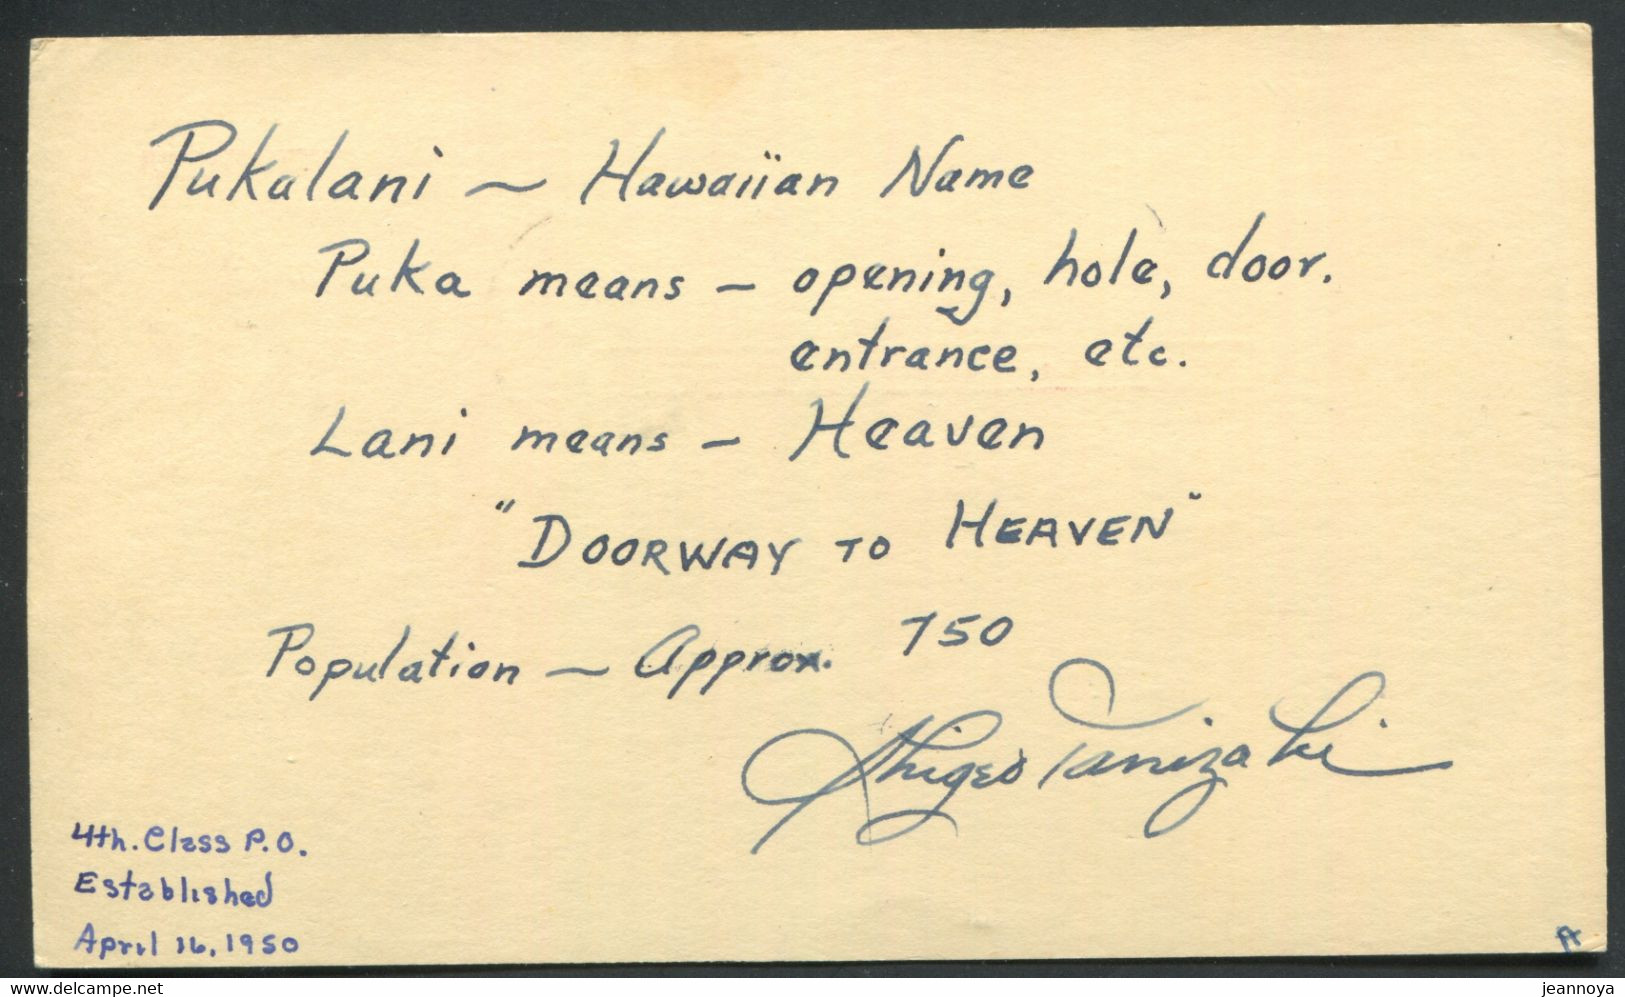 Pukalani ~ Hawaiian Name
Puka means - opening, hole, door.
entrance, etc.
Lani means - Heaven
"DOORWAY TO HEAVEN"
Population ~ Approx. 750
Shigeo Tanizaki
4th. Class P.O.
Established
April 16, 1950
A
www.delcampe.net
jeannoya